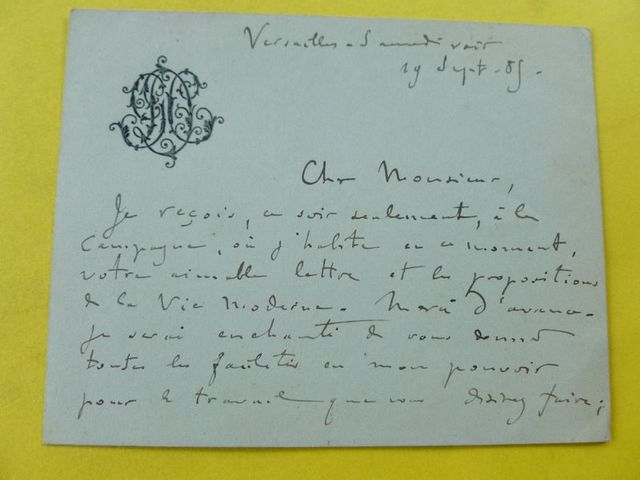 Versailles - Samedi soir
19 Sept - 85 -
Cher Monsieur,
Je reçois, ce soir seulement, à la
Campagne, où j'habite en ce moment,
votre aimable lettre et les propositions
de la Vie Moderne. Merci d'avance.
Je serai enchanté de vous donner
toutes les facilités en mon pouvoir
pour le travail que vous désirez faire;